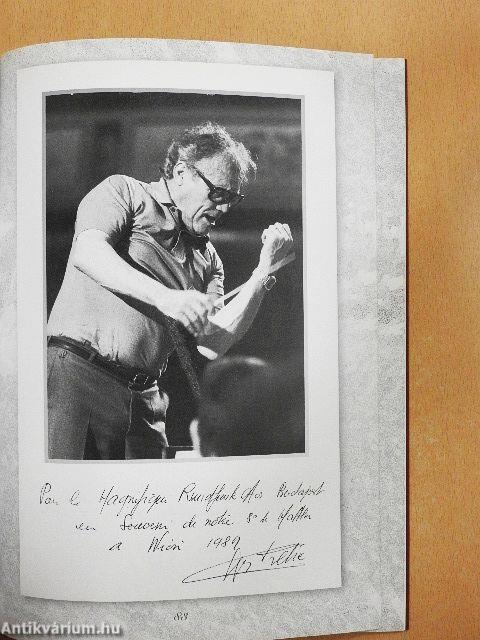 Pour le Magnifique Rundfunk Chor Budapest
en Souvenir de notre 8e de Mahler
a Wien 1989
88
Antikvárium.hu